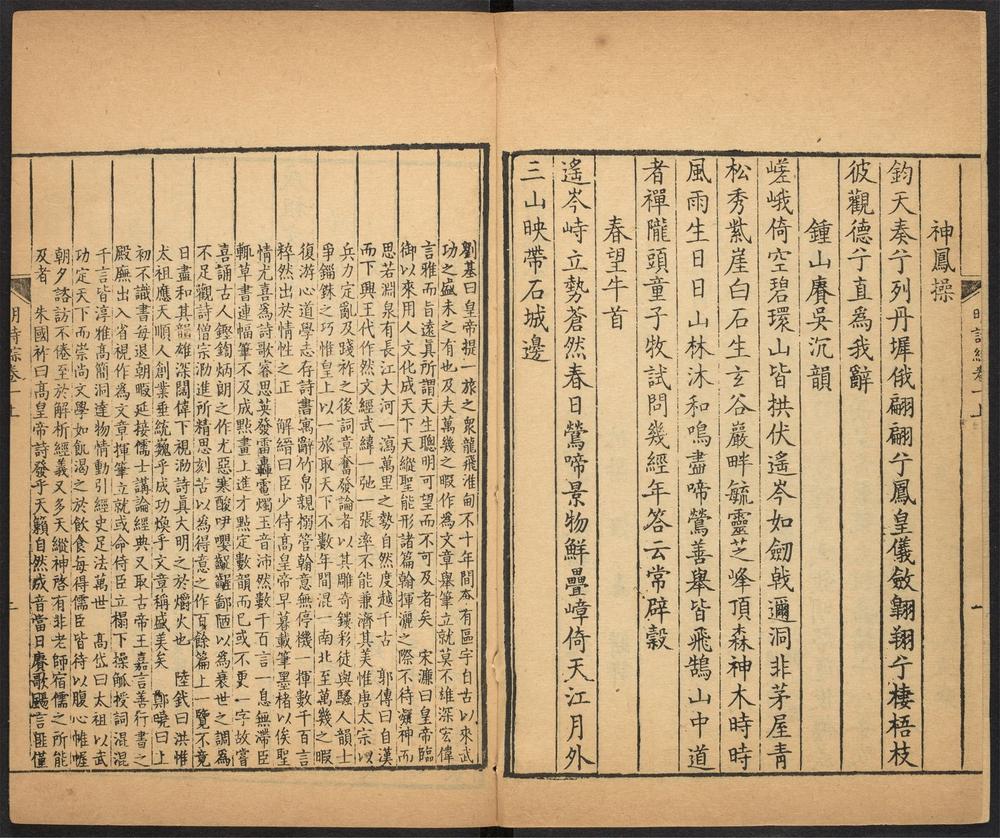 神鳳操
鈞天奏兮列丹墀俄翩翩兮鳳皇儀斂翱翔兮棲梧枝
彼觀德兮直為我辭
鍾山賡吳沉韻
嵯峨倚空碧環山皆拱伏遙岑如劒戟邇洞非茅屋青
松秀紫崖白石生玄谷巖畔毓靈芝峰頂森神木時時
風雨生日日山林沐和鳴盡啼鶯善舉皆飛鵠山中道
者禪隴頭童子牧試問幾經年答云常辟穀
春望牛首
遙岑峙立勢蒼然春日鶯啼景物鮮疊嶂倚天江月外
三山映帶石城邊
劉基曰皇帝提一旅之衆龍飛淮甸不十年間奄有區宇自古以來武
功之盛未之有也及夫萬幾之暇作為文章舉筆立就莫不雄深宏偉
言雅而旨遠眞所謂天生聰明可望而不可及者矣 宋濂曰皇帝臨
御以來用人文化成天下天縱聖能形諸篇翰揮灑之際不待凝神而
思若淵泉有長江大河一瀉萬里之勢自然度越千古 郭傳曰自漢
而下興王代作然文經武緯一弛一張率不能兼濟其美惟唐太宗以
兵力定亂及踐祚之後詞章奮發論者以其雕奇鏤彩徒與騷人韻士
爭錙銖之巧惟皇上以一旅取天下不數年間混一南北至萬幾之暇
復游心道學志存詩書寓辭竹帛親搦管翰意無停機一揮數千百言
粹然出於情性之正 解縉曰臣少侍高皇帝早暮載筆墨楮以俟聖
情尤喜為詩歌睿思英發雷轟電燭玉音沛然數千百言一息無滯臣
輒草書連幅筆不及成點畫上進才點定數韻而已或不更一字故嘗
喜誦古人鏗鍧炳朗之作尤惡寒酸咿嚶齷齪鄙陋以為衰世之調為
不足觀詩僧宗泐進所精思刻苦以為得意之作百餘篇上一覽不竟
日盡和其韻雄深闊偉下視泐詩真大明之於爝火也 陸釴曰洪惟
太祖應天順人創業垂統巍乎成功煥乎文章稱盛美矣 鄭曉曰上
初不識書每退朝暇延接儒士講論經典又取古帝王嘉言善行書之
殿廡出入省視作為文章揮筆立就或命侍臣立榻下操觚授詞混混
千言皆淳雅高簡洞達物情動引經史足法萬世 高岱曰太祖以武
功定天下而崇尚文學如飢渴之於飲食每得儒臣皆待以腹心帷幄
朝夕諮訪不倦至於解析經義又多天縱神啓有非老師宿儒之所能
及者 朱國祚曰高皇帝詩發乎天籟自然成音當日賡歌颺言匪僅
明詩綜卷一上